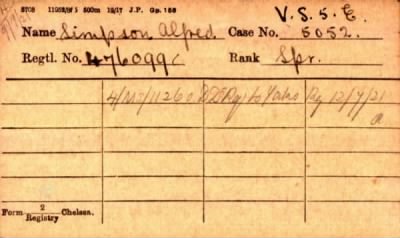 5708 11952/W 5 500m 12/17 J.P. Gp. 158
V. S. 5. E.
Name Simpson Alfred. Case No. 5052.
Regtl. No. 476099 Rank Spr.
4/MS/11260 to Yorks Rg 12/7/21
a
Form 2 Registry Chelsea.